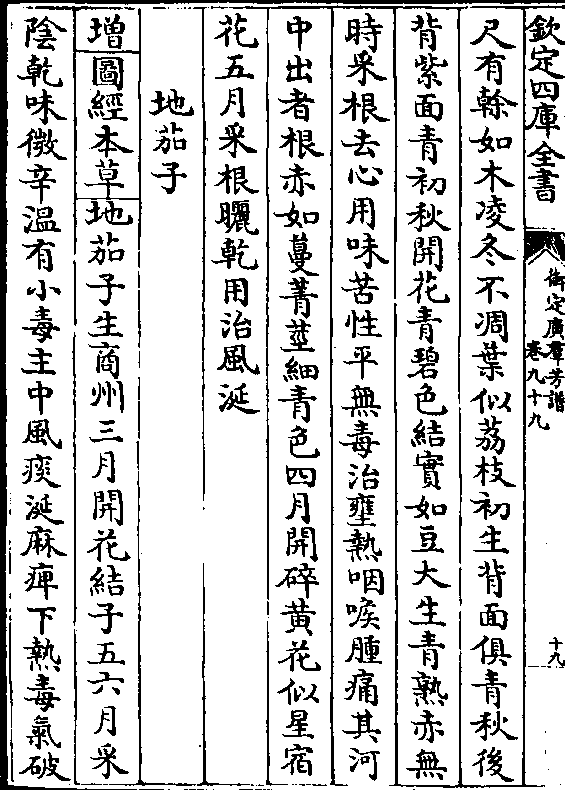 欽定四庫全書
御定廣羣芳譜
卷九十九
十九
尺有餘如木凌冬不凋葉似荔枝初生背面俱青秋後
背紫面青初秋開花青碧色結實如豆大生青熟赤無
時采根去心用味苦性平無毒治壅熱咽喉腫痛其河
中出者根赤如蔓菁莖細青色四月開碎黄花似星宿
花五月采根曬乾用治風涎
地茄子
増圖經本草地茄子生商州三月開花結子五六月采
陰乾味微辛温有小毒主中風痰涎麻痺下熱毒氣破